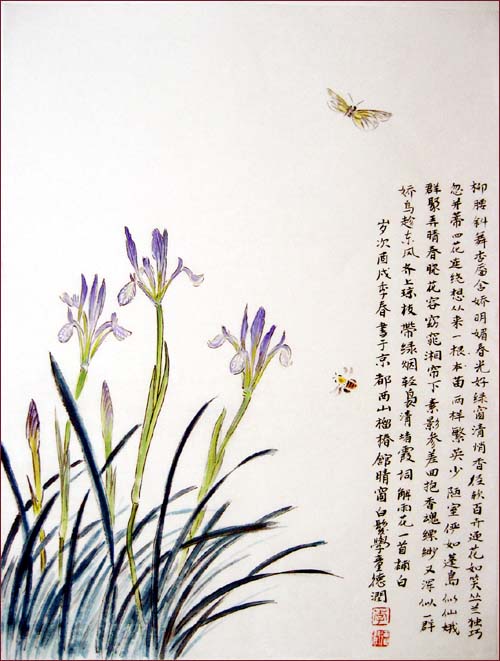 柳腰斜舞杏唇含娇明媚春光好绿窗清悄香径软百卉迎花如笑丛兰独巧
忽并蒂四花连绕想从来一根本茁两样繁英少随室伊如蓬岛似仙娥
群聚弄晴春晓花容窈窕湘帘下素影参差四抱香魂缥缈又浑似一群
娇鸟趁东风齐上琼枝帶绿烟轻袅清堵霞词解雨花一首補白
岁次酉戌季春書于京都西山榴椿館晴窗白髮學童德潤